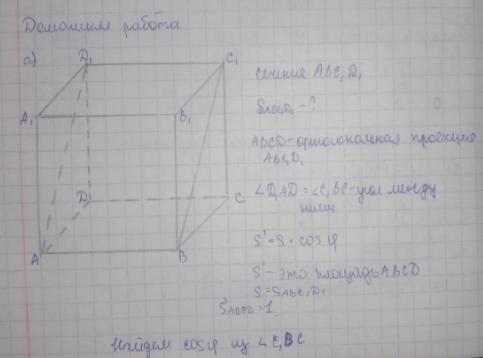 Домашняя работа
а)
D₁
C₁
сечение ABC₁D₁
S ABC₁D₁ - ?
A₁
B₁
ABCD - ортогональная проекция
ABC₁D₁
D
C
∠D₁AD = ∠C₁BC - угол между
ними
S' = S · cos φ
S' - это площадь ABCD
A
B
S = S ABC₁D₁
S ABCD = 1.
Найдем cos φ из ∠C₁BC